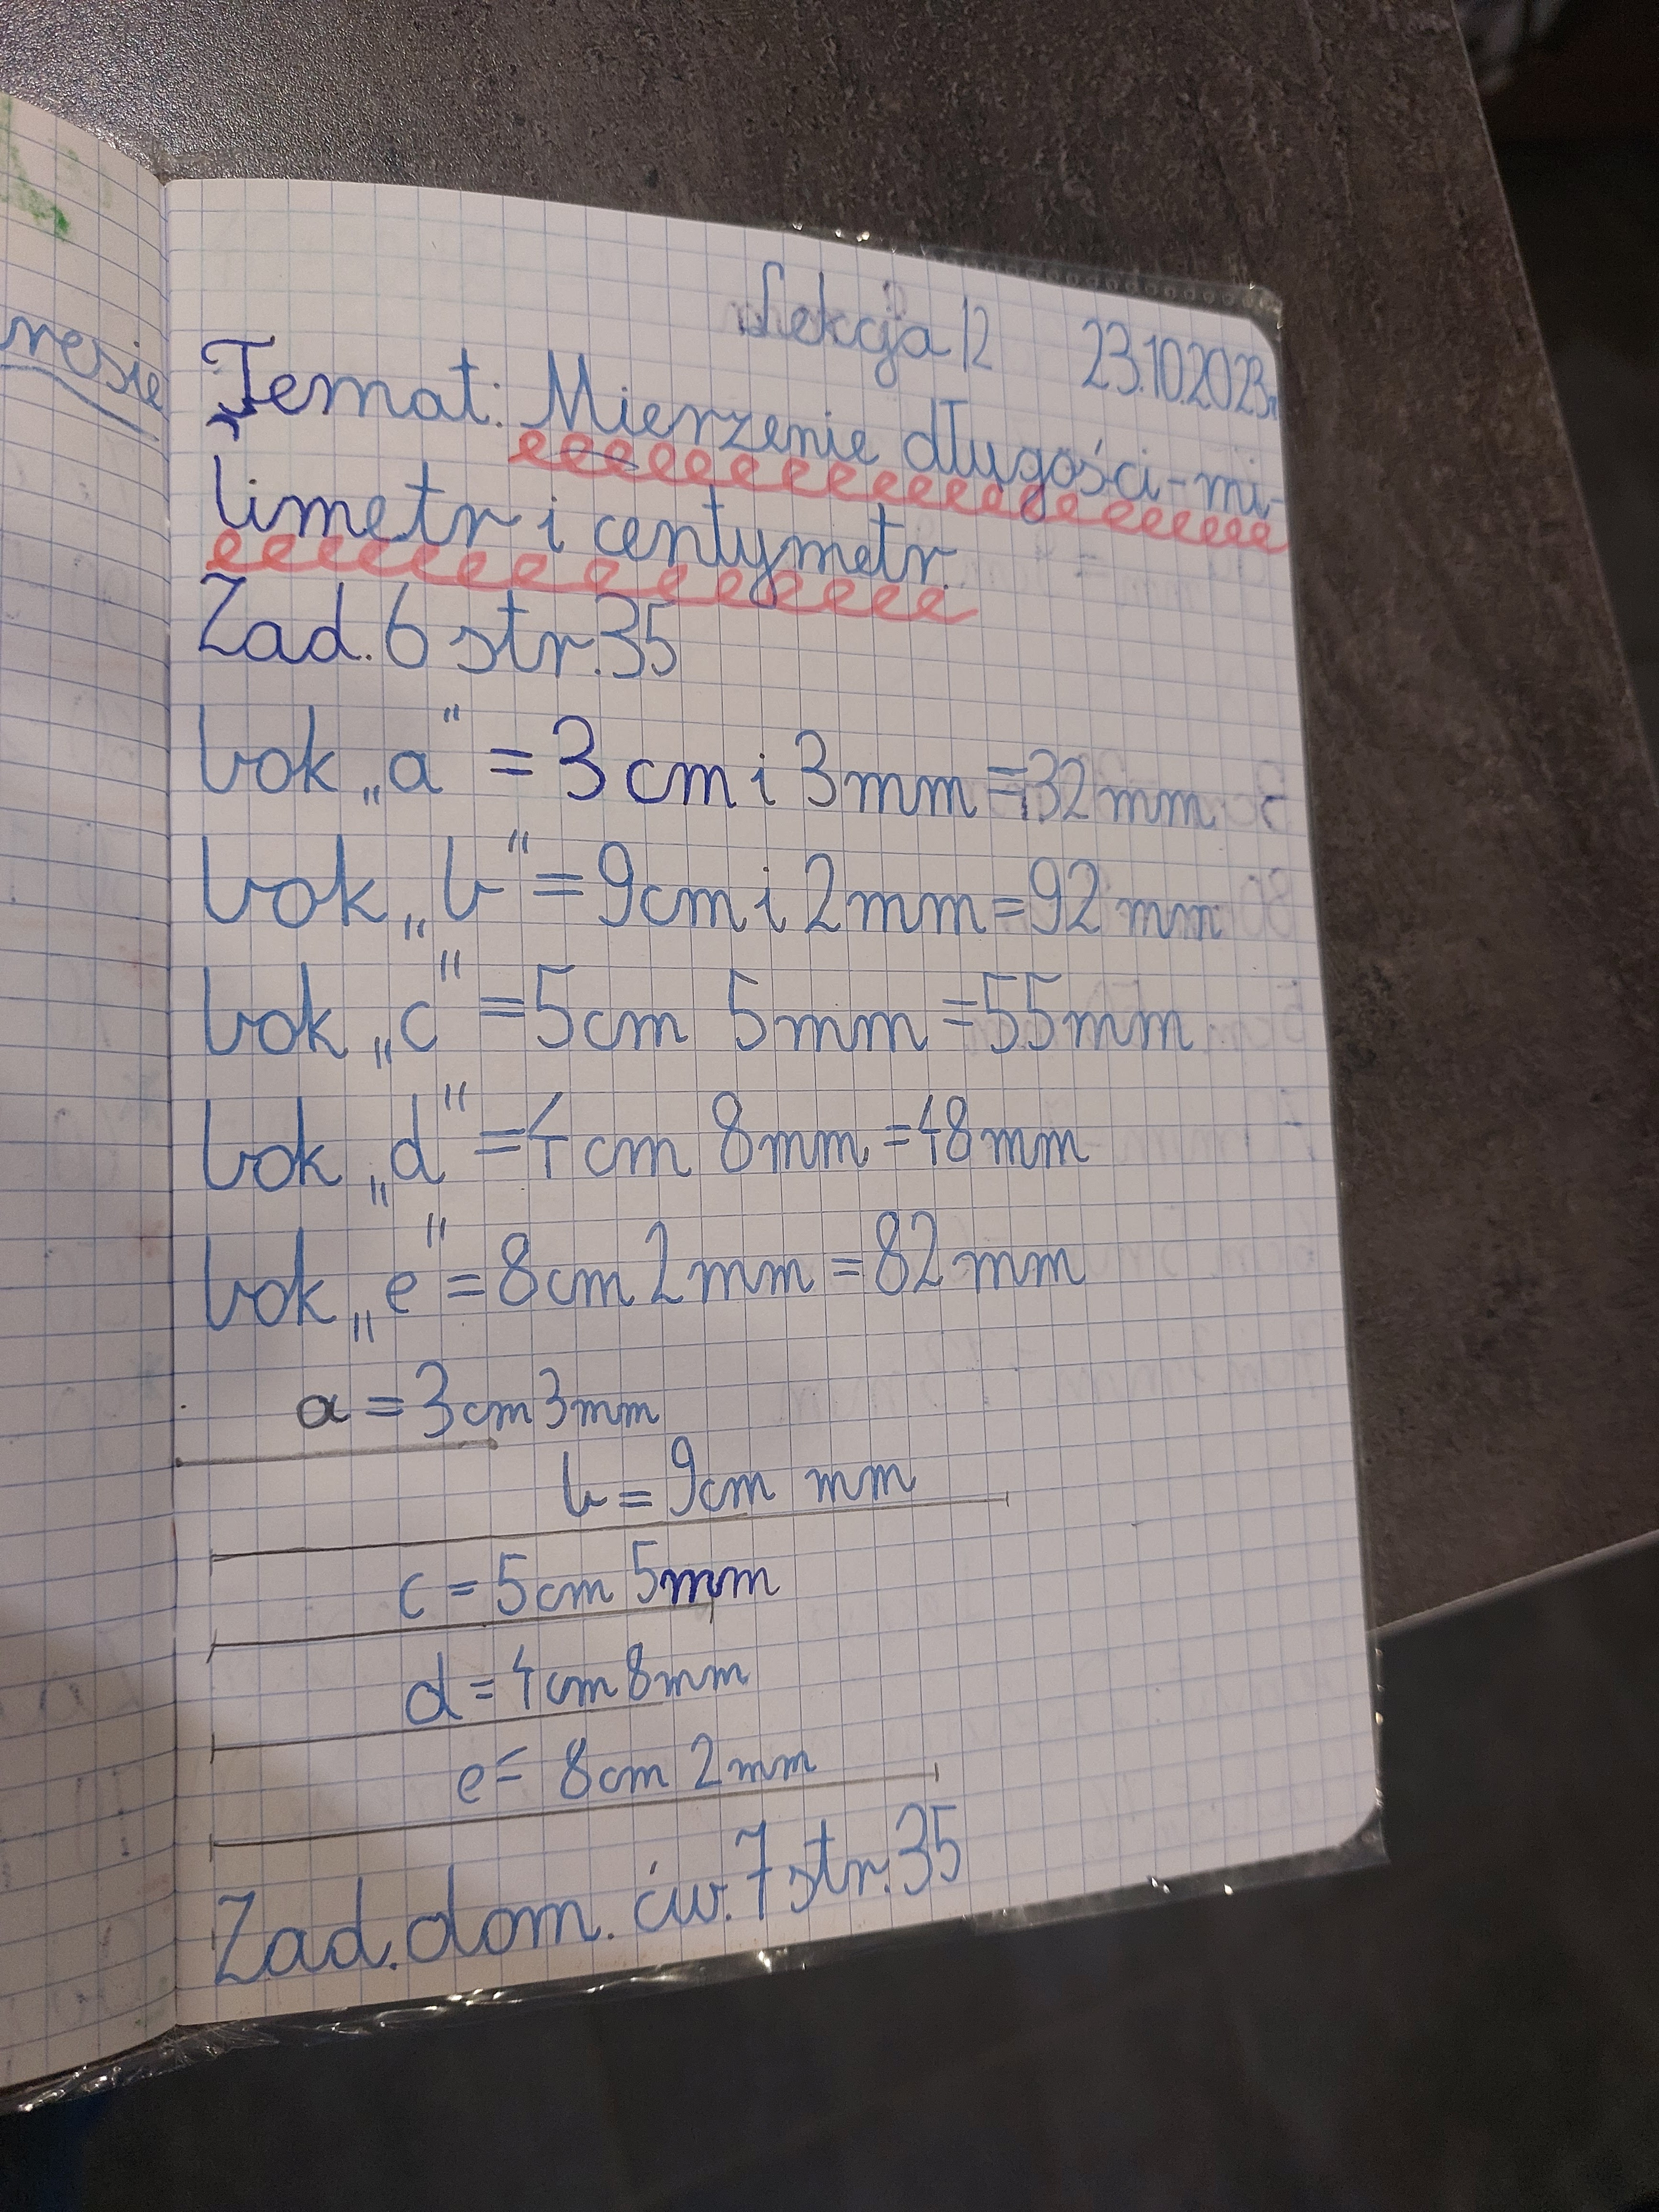 nesie
Lekcja 12 23.10.2023r.
Temat: Mierzenie długości-mi-
limetr i centymetr.
Zad. 6 str. 35
bok „a" = 3 cm i 3 mm = 32 mm
bok „b" = 9 cm i 2 mm = 92 mm
bok „c" = 5 cm 5 mm = 55 mm
bok „d" = 4 cm 8 mm = 48 mm
bok „e" = 8 cm 2 mm = 82 mm
a = 3 cm 3 mm
b = 9 cm mm
c = 5 cm 5 mm
d = 4 cm 8 mm
e = 8 cm 2 mm
Zad. dom. ćw. 7 str. 35